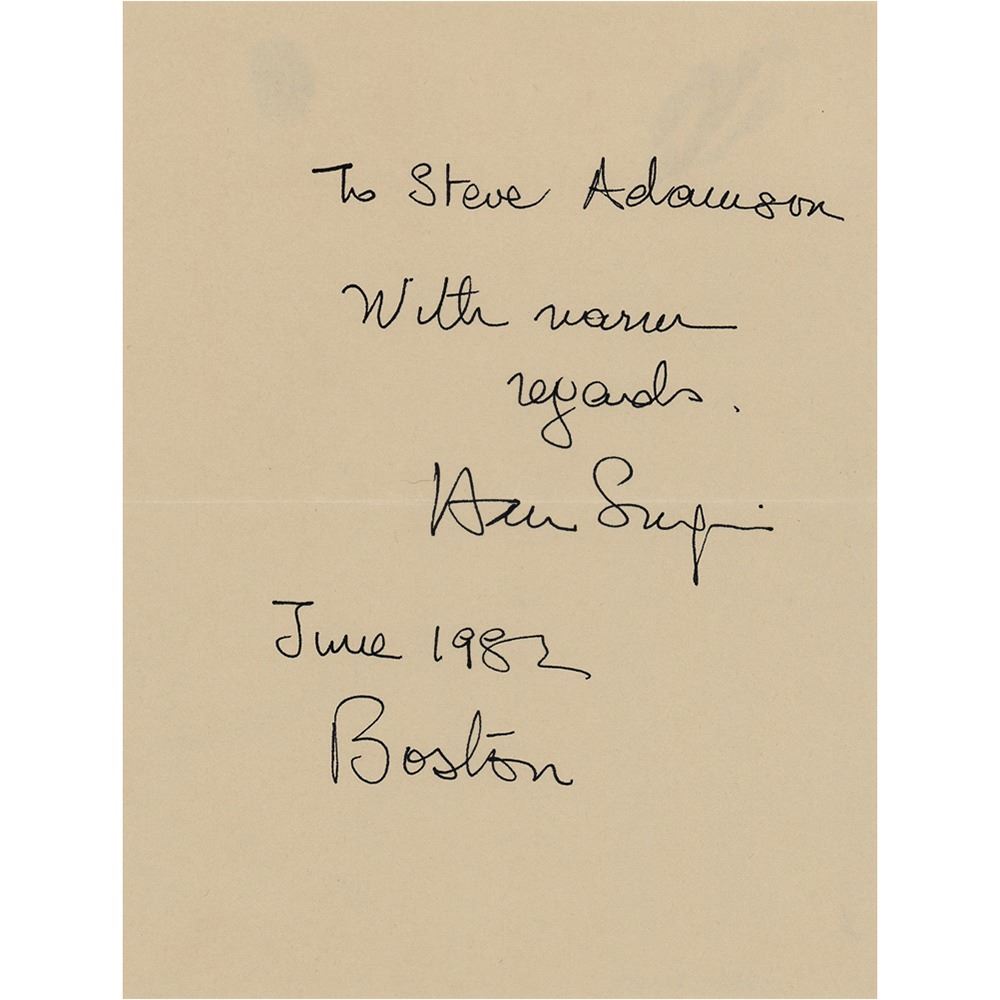 To Steve Adamson
With warm
regards.
June 1982
Boston